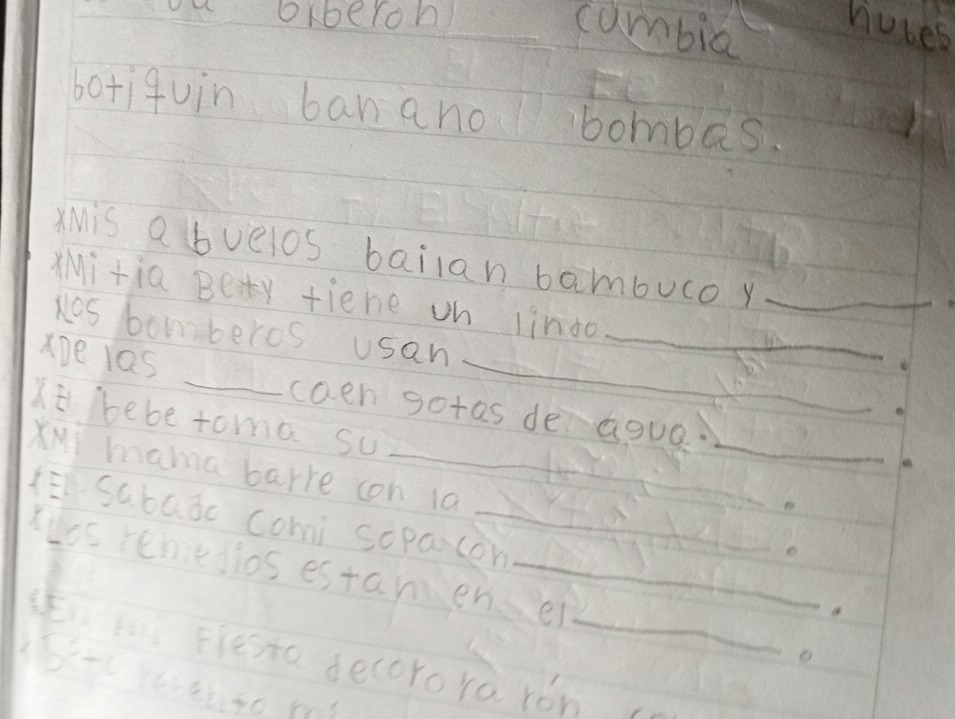 biberon cumbia nubes
botiquin banano bombas.
xMis abuelos bailan bambuco y______.
xMi tia Betty tiene un lindo______.
xLos bomberos usan______.
xDe las ____ caen gotas de agua.______.
xEl bebe toma su______.
xMi mama barre con la______.
xEl sabado comi sopa con______.
xLos remedios estan en el______.
xEn mi fiesta decorora rón